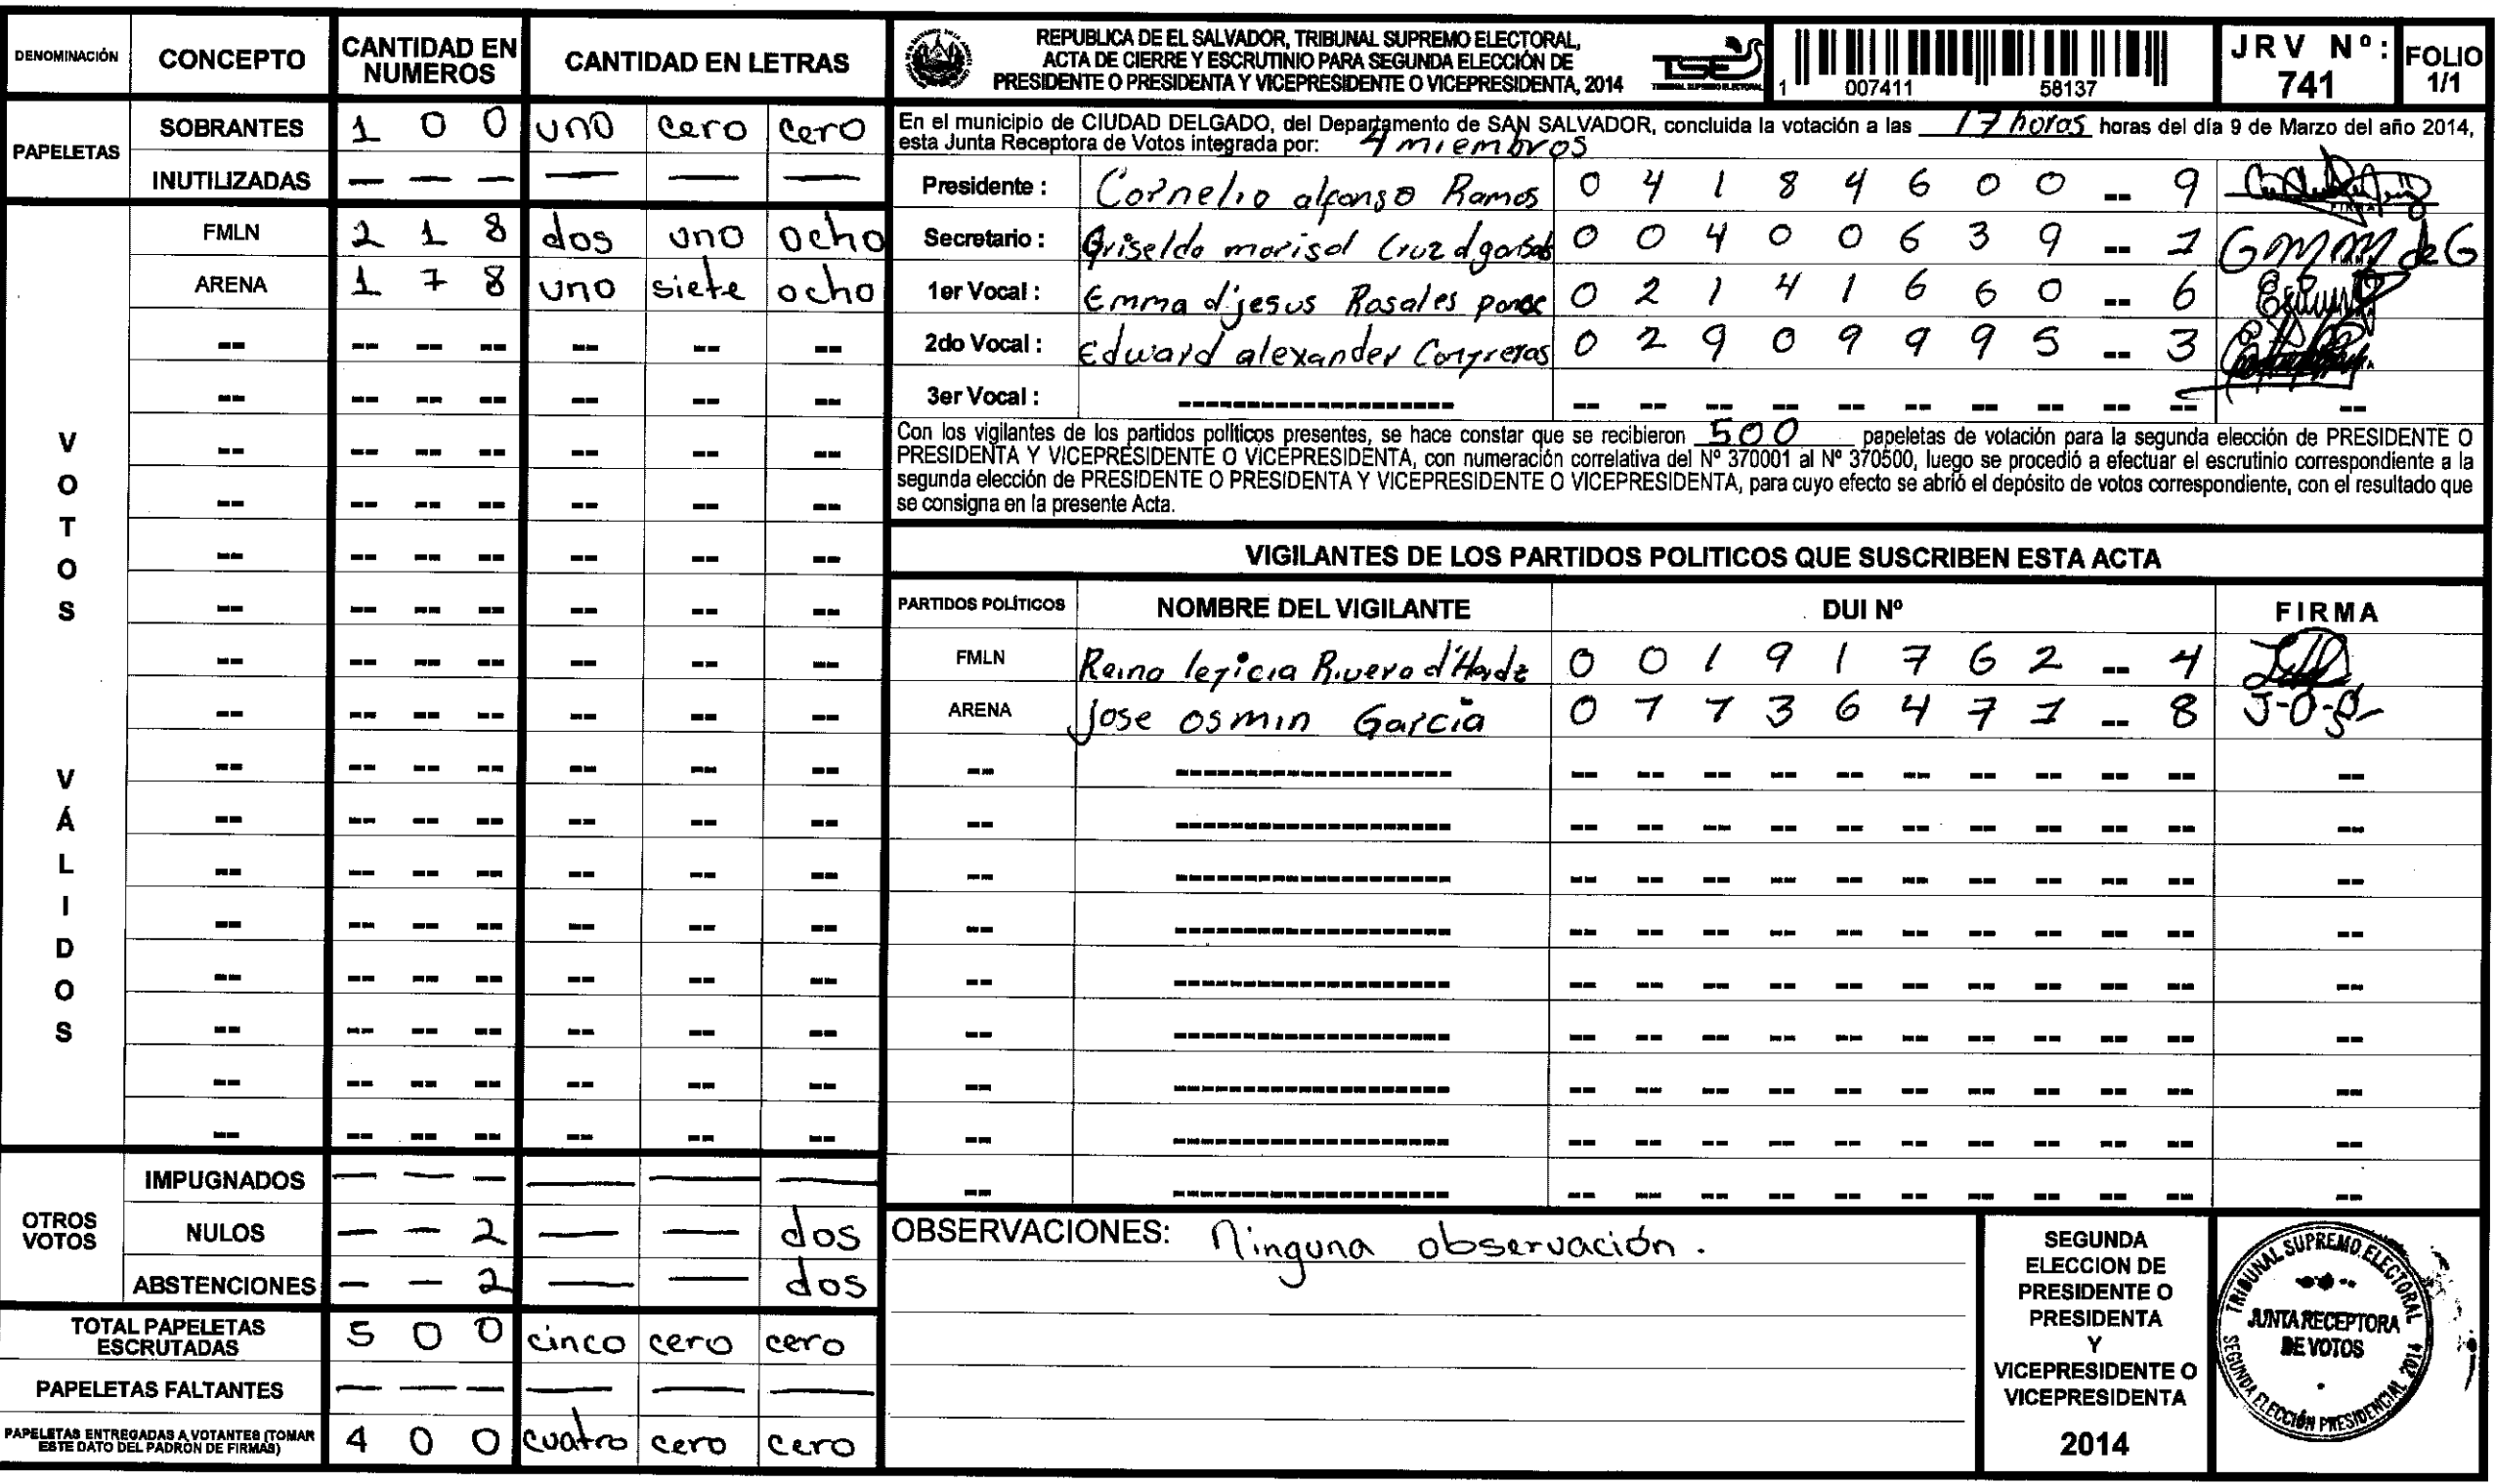 DENOMINACIÓN CONCEPTO CANTIDAD EN NUMEROS CANTIDAD EN LETRAS
PAPELETAS
SOBRANTES 1 0 0 uno cero cero
INUTILIZADAS — — — — — —
VOTOS VÁLIDOS
FMLN 2 1 8 dos uno ocho
ARENA 1 7 8 uno siete ocho
OTROS VOTOS
IMPUGNADOS — — — — — —
NULOS — — 2 — — dos
ABSTENCIONES — — 2 — — dos
TOTAL PAPELETAS ESCRUTADAS 5 0 0 cinco cero cero
PAPELETAS FALTANTES — — — — — —
PAPELETAS ENTREGADAS A VOTANTES (TOMAR ESTE DATO DEL PADRÓN DE FIRMAS) 4 0 0 cuatro cero cero
REPUBLICA DE EL SALVADOR, TRIBUNAL SUPREMO ELECTORAL,
ACTA DE CIERRE Y ESCRUTINIO PARA SEGUNDA ELECCIÓN DE
PRESIDENTE O PRESIDENTA Y VICEPRESIDENTE O VICEPRESIDENTA, 2014
TSE
TRIBUNAL SUPREMO ELECTORAL
1 007411 58137
JRV Nº: 741
FOLIO 1/1
En el municipio de CIUDAD DELGADO, del Departamento de SAN SALVADOR, concluida la votación a las 17 horas horas del día 9 de Marzo del año 2014,
esta Junta Receptora de Votos integrada por: 4 miembros
Presidente : Cornelio alfonso Ramos 0 4 1 8 4 6 0 0 -- 9
Secretario : Griselda marisol Cruz 0 0 4 0 0 6 3 9 -- 1 GMM de G
1er Vocal : Emma d'jesus Rosales ponce 0 2 1 4 1 6 6 0 -- 6
2do Vocal : Edward alexander Contreras 0 2 9 0 9 9 9 5 -- 3
3er Vocal :
Con los vigilantes de los partidos políticos presentes, se hace constar que se recibieron 500 papeletas de votación para la segunda elección de PRESIDENTE O
PRESIDENTA Y VICEPRESIDENTE O VICEPRESIDENTA, con numeración correlativa del Nº 370001 al Nº 370500, luego se procedió a efectuar el escrutinio correspondiente a la
segunda elección de PRESIDENTE O PRESIDENTA Y VICEPRESIDENTE O VICEPRESIDENTA, para cuyo efecto se abrió el depósito de votos correspondiente, con el resultado que
se consigna en la presente Acta.
VIGILANTES DE LOS PARTIDOS POLITICOS QUE SUSCRIBEN ESTA ACTA
PARTIDOS POLÍTICOS NOMBRE DEL VIGILANTE DUI Nº FIRMA
FMLN Reina leticia Rivera d' 0 0 1 9 1 7 6 2 -- 4
ARENA Jose osmin García 0 7 7 3 6 4 7 1 -- 8 J-O-G-
OBSERVACIONES: Ninguna observación.
SEGUNDA
ELECCION DE
PRESIDENTE O
PRESIDENTA
Y
VICEPRESIDENTE O
VICEPRESIDENTA
2014
TRIBUNAL SUPREMO ELECTORAL
JUNTA RECEPTORA
DE VOTOS
SEGUNDA ELECCIÓN PRESIDENCIAL 2014